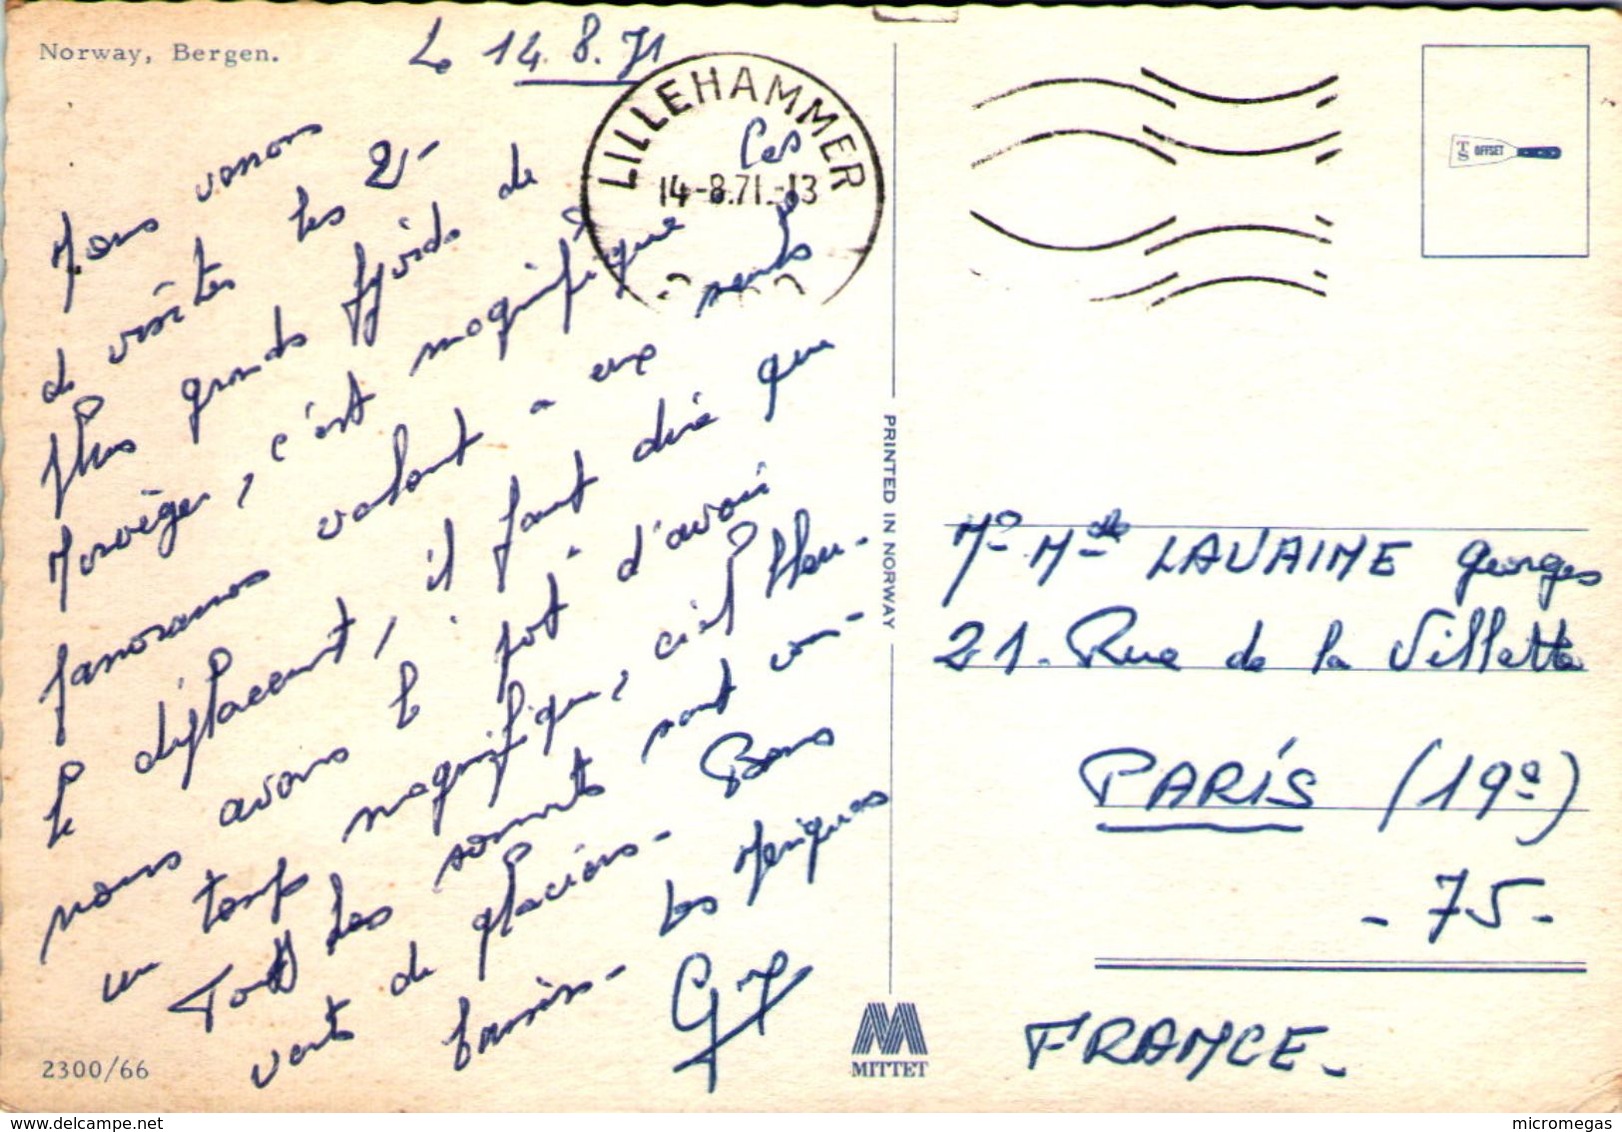 Norway, Bergen.
Le 14.8.71
LILLEHAMMER
14-8.71.-13
Nous venons
de visiter les 2
plus grands fjords de
Norvège, c'est magnifique Ces
panoramas valent à eux seuls
le déplacement, il faut dire que
nous avons le pot d'avoir
un temps magnifique, ciel bleu-
Tous les sommets sont cou-
verts de glaciers- Bons
baisers- Les
G
2300/66
PRINTED IN NORWAY
MITTET
TS OFFSET
Mr Melle LAVAIME Georges
21. Rue de la Villette
PARIS (19e)
- 75 -
FRANCE -
www.delcampe.net
micromegas